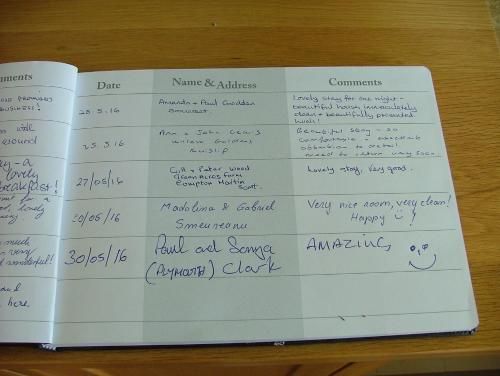 mments
BUSINESS!
a
lovely
breakfast!
for a
lovely
much
very
wonderful!
and
here
Date
Name & Address
Comments
25.5.16
Amanda + Paul Goddden
Lovely stay for one night -
beautiful house, immaculately
clean + beautifully presented
25.5.16
Ann + John Lewis
Gardens
Ruislip
Beautiful stay - so
comfortable + excellent
attention to detail.
need to return very soon.
27/05/16
Gill + Peter Wood
Green Acres Farm
Compton Martin
Som.
Lovely stay, very good.
30/05/16
Madalina & Gabriel
Smeureanu
Very nice room, very clean!
Happy !
30/05/16
Paul and Sonya
(PLYMOUTH) Clark
AMAZING